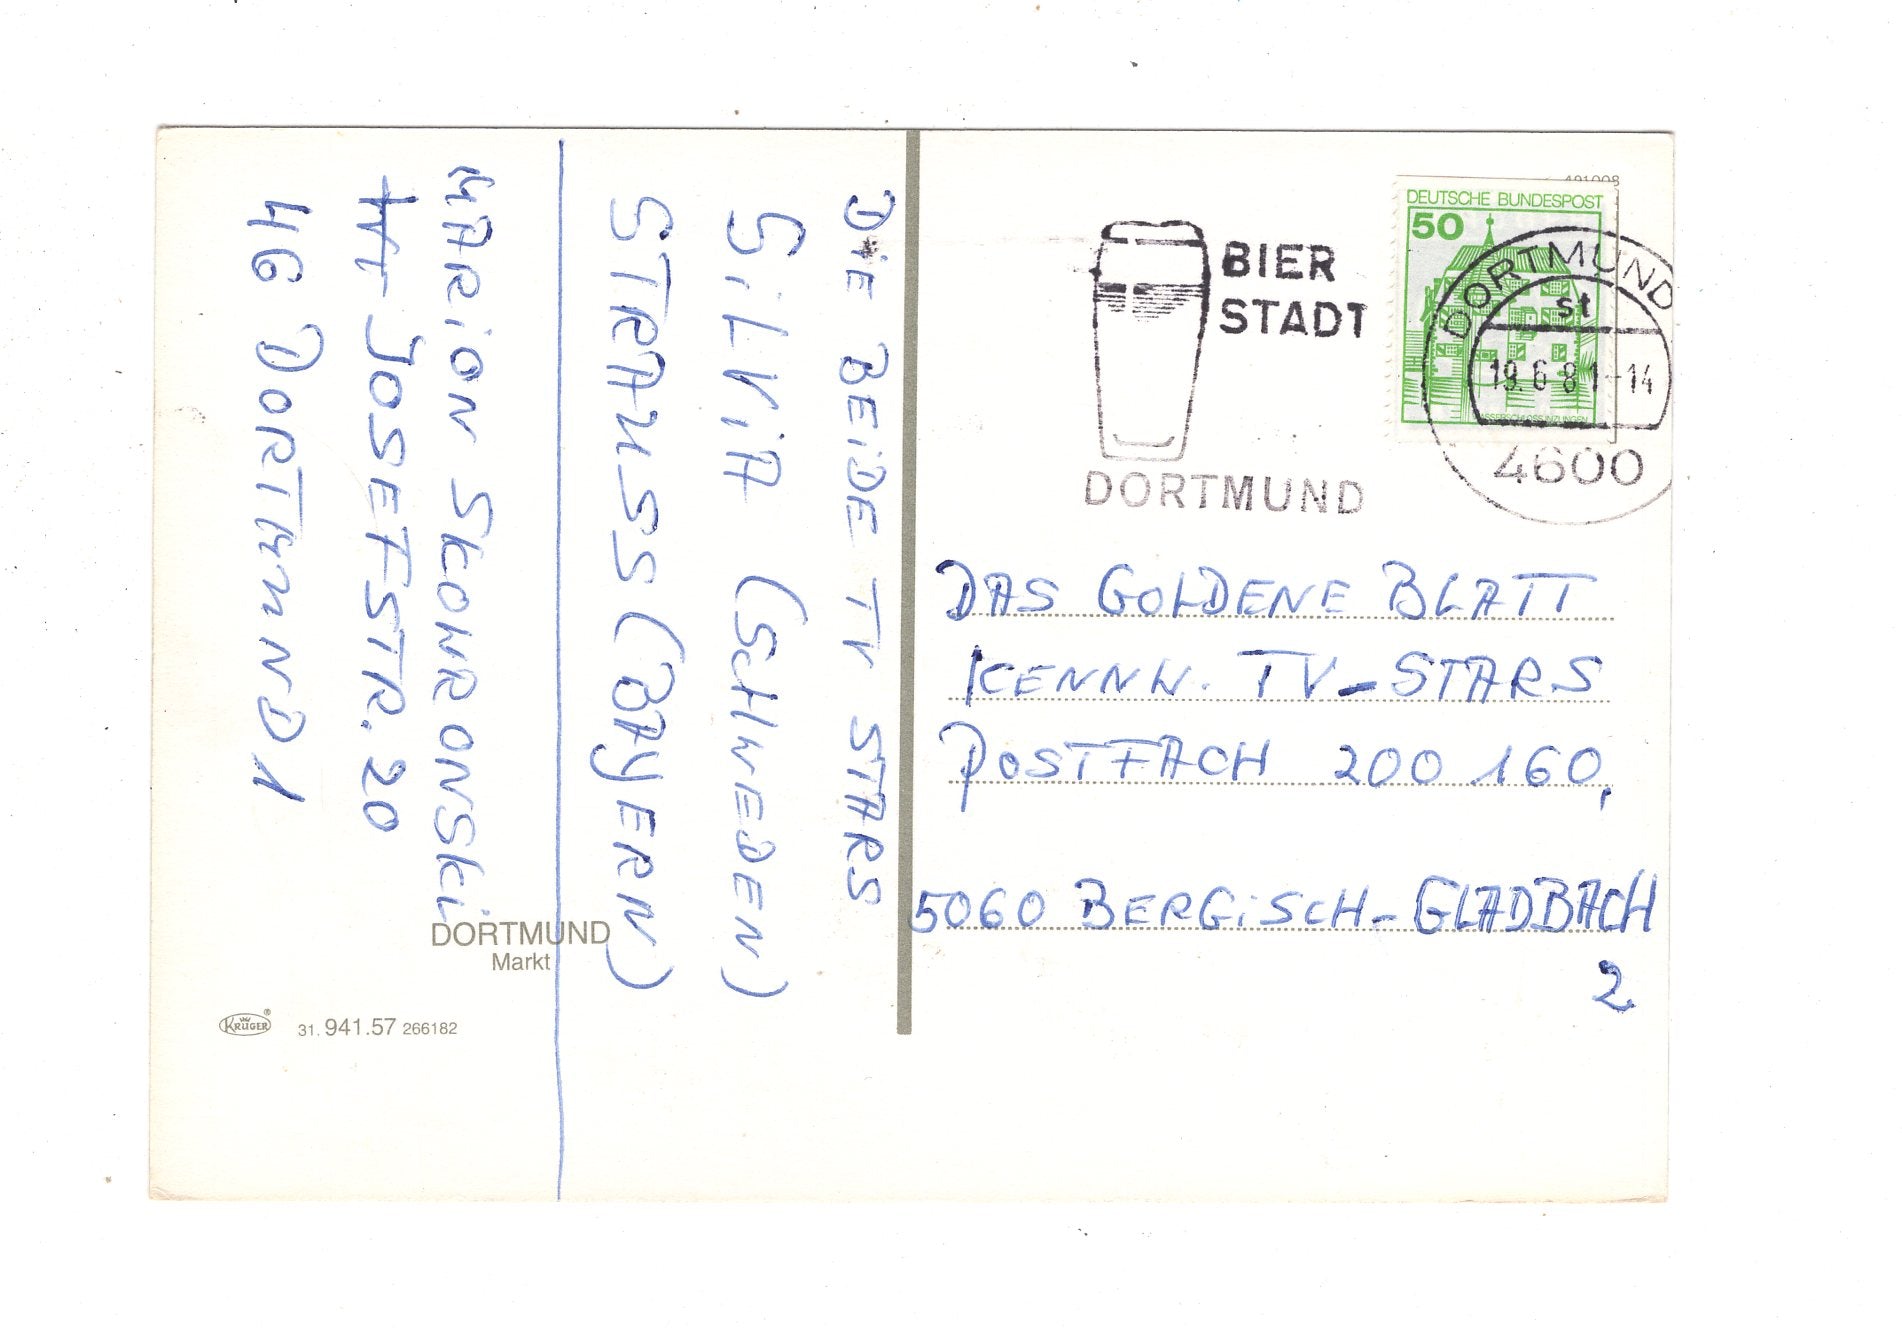 DIE BEIDE TV STARS
SILVIA (SCHWEDEN)
STRAUSS (BAYERN)
MARION SKOWRONSKI
JOSEFSTR. 20
46 DORTMUND 1
DORTMUND
Markt
KRÜGER® 31.941.57 266182
491098
DEUTSCHE BUNDESPOST
50
WASSERSCHLOSS INZLINGEN
BIER
STADT
DORTMUND
DORTMUND
st
19.6.81-14
4600
DAS GOLDENE BLATT
KENNW. TV-STARS
POSTFACH 200 160,
5060 BERGISCH-GLADBACH
2